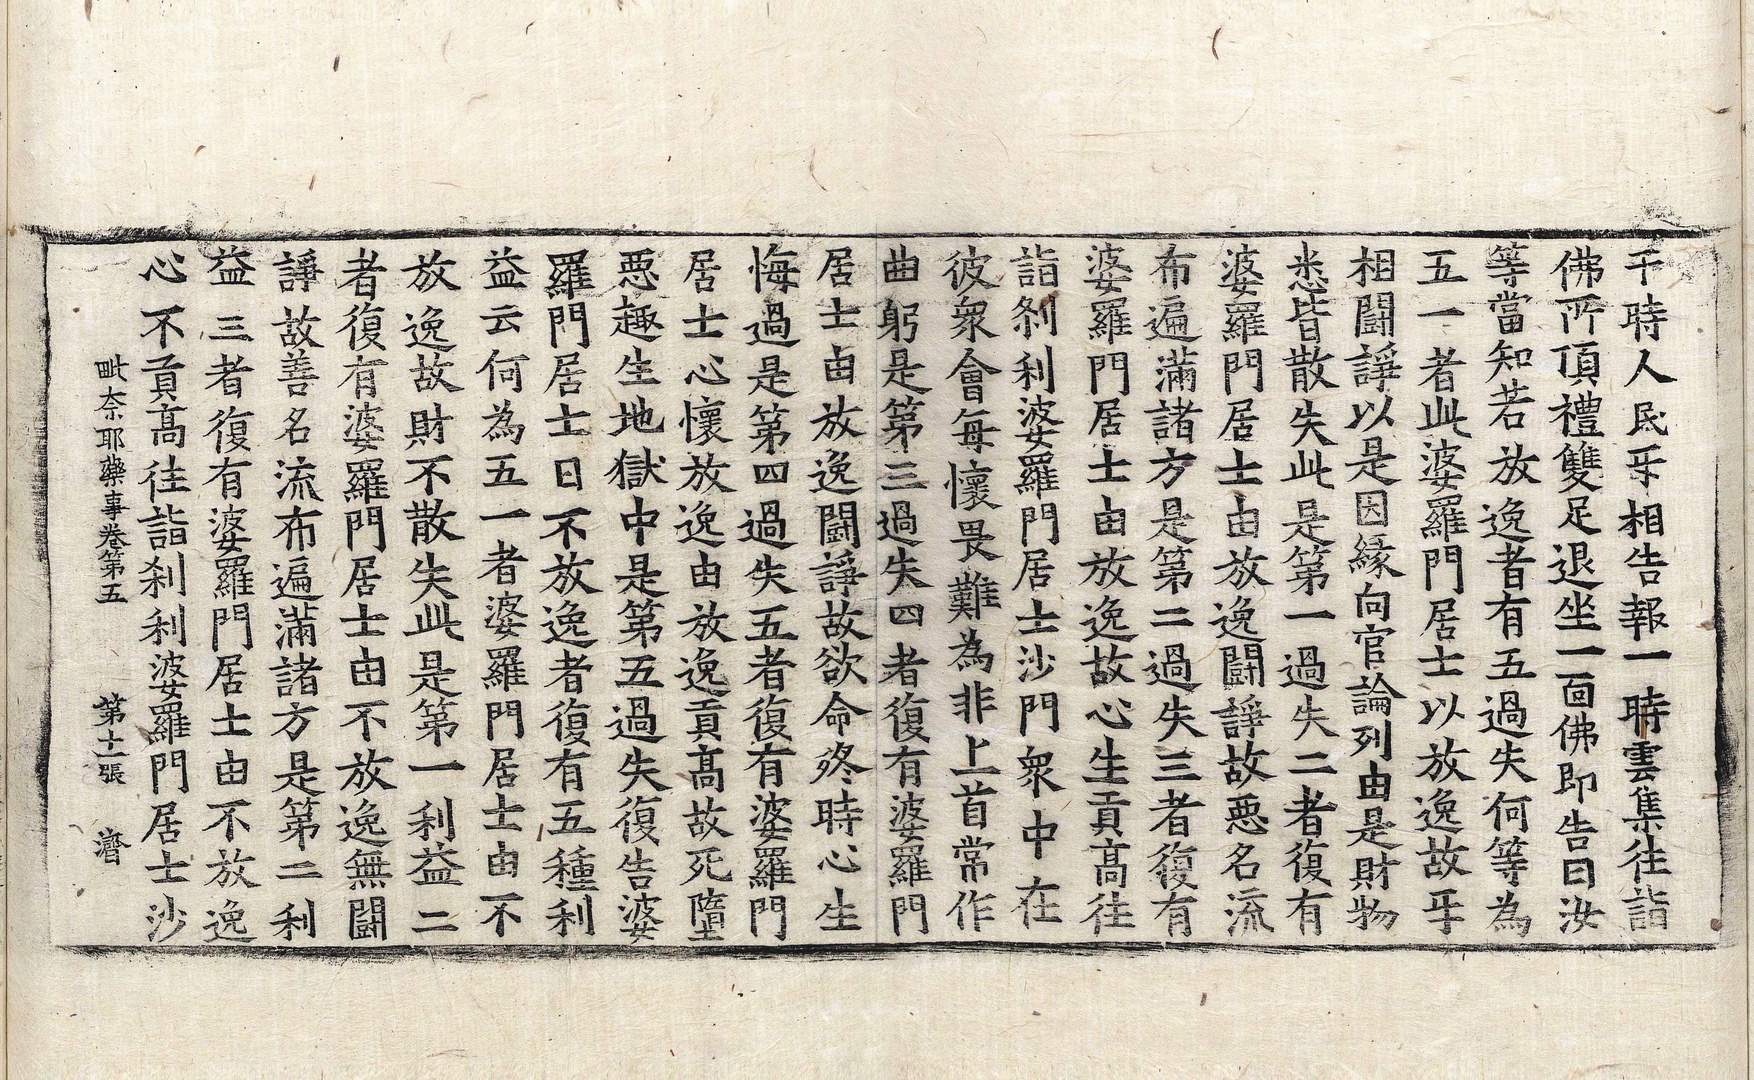 于時人民㸦相告報一時雲集往詣
佛所頂禮雙足退坐一面佛即告曰汝
等當知若放逸者有五過失何等為
五一者此婆羅門居士以放逸故㸦
相鬪諍以是因緣向官論列由是財物
悉皆散失此是第一過失二者復有
婆羅門居士由放逸鬪諍故惡名流
布遍滿諸方是第二過失三者復有
婆羅門居士由放逸故心生貢高往
詣剎利婆羅門居士沙門衆中在
彼衆會每懷畏難為非上首常作
曲躬是第三過失四者復有婆羅門
居士由放逸鬪諍故欲命終時心生
悔過是第四過失五者復有婆羅門
居士心懷放逸由放逸貢高故死墮
惡趣生地獄中是第五過失復告婆
羅門居士曰不放逸者復有五種利
益云何為五一者婆羅門居士由不
放逸故財不散失此是第一利益二
者復有婆羅門居士由不放逸無鬪
諍故善名流布遍滿諸方是第二利
益三者復有婆羅門居士由不放逸
心不貢高往詣剎利婆羅門居士沙
毗奈耶藥事卷第五 第十二張 濟